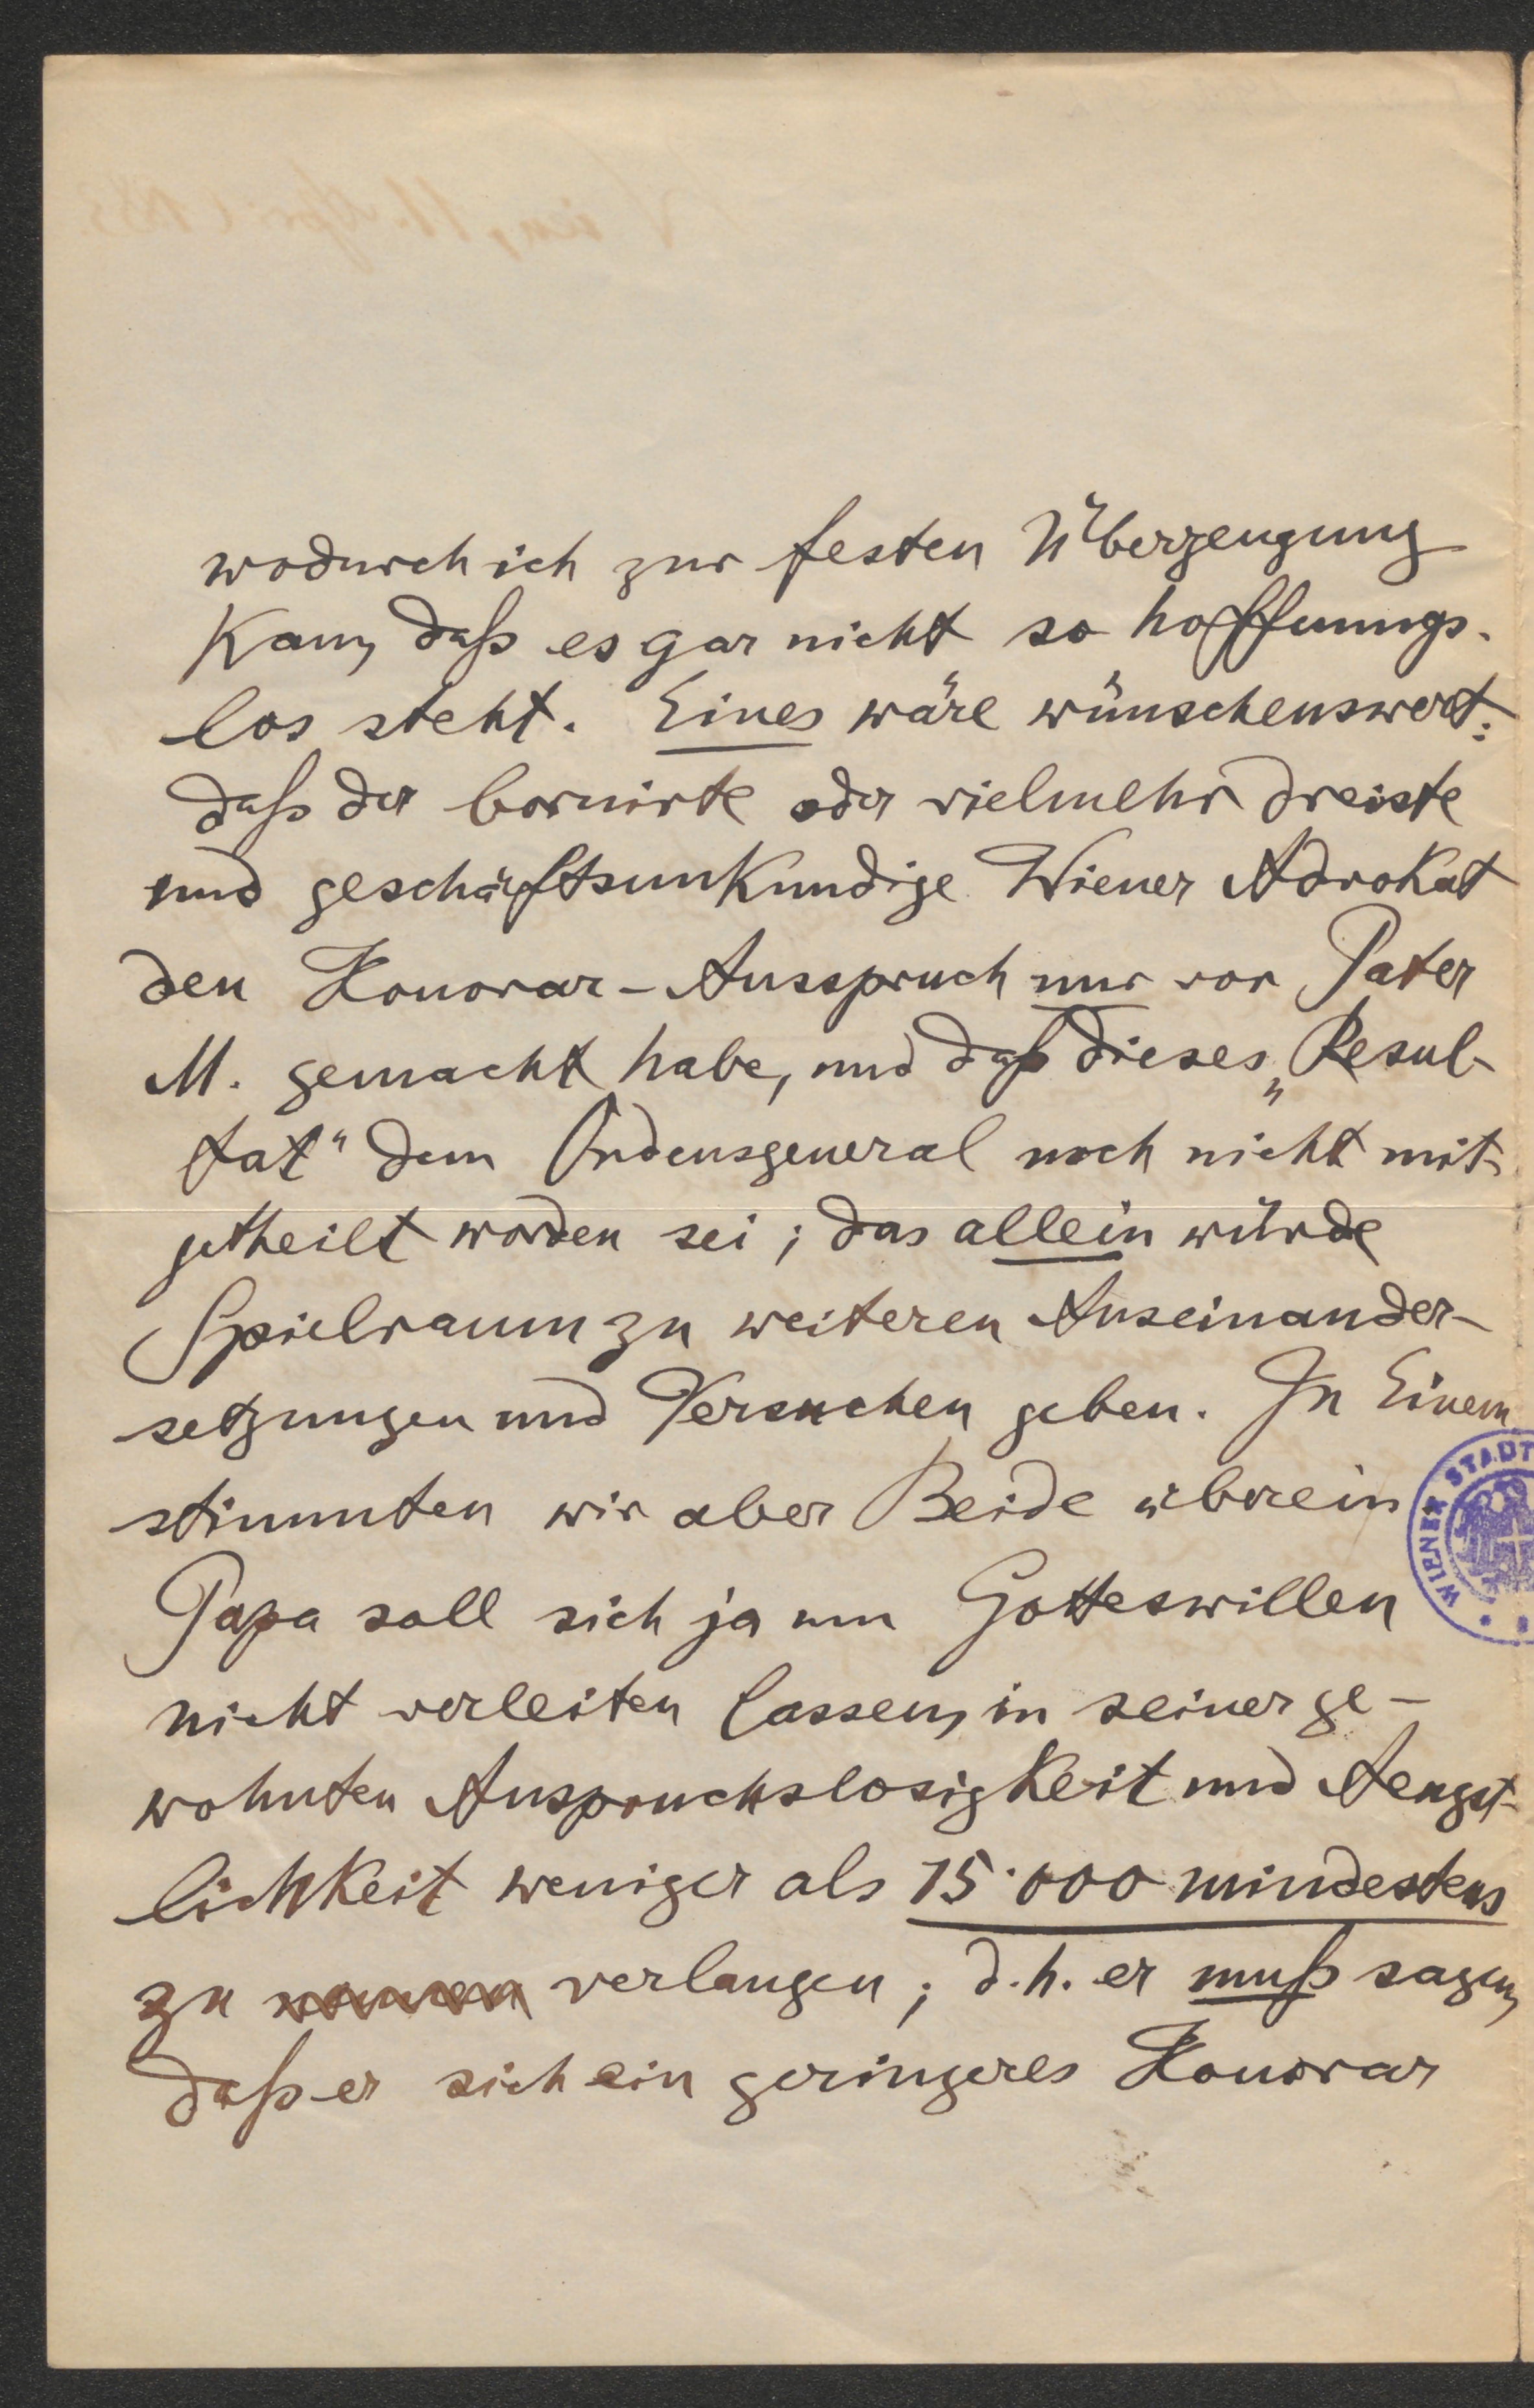 wodurch ich zur festen Überzeugung
kam, daß es gar nicht so hoffnungs-
los steht. Eines wäre wünschenswert:
daß der bornirte oder vielmehr dreiste
und geschäftsunkundige Wiener Advokat
den Honorar-Ausspruch nur vor Pater
M. gemacht habe, und daß dieses „Resul-
tat" dem Ordensgeneral noch nicht mit-
getheilt worden sei; das allein würde
Spielraum zu weiteren Auseinander-
setzungen und Versuchen geben. In Einem
stimmten wir aber Beide überein
Papa soll sich ja um Gotteswillen
nicht verleiten lassen, in seiner ge-
wohnten Anspruchslosigkeit und Aengst-
lichkeit weniger als 15·000 mindestens
zu verlangen; d.h. er muß sagen,
daß er sich ein geringeres Honorar
WIENER STADT